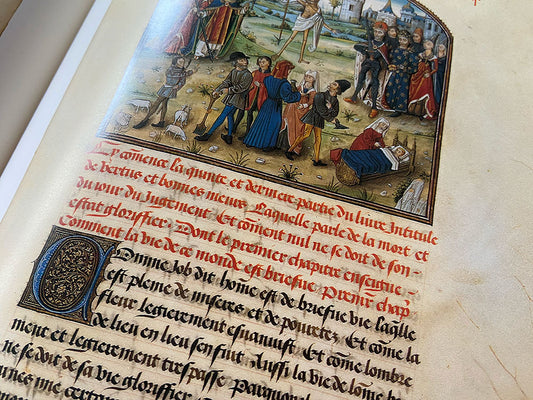 Cy comence la quinte et derniere partie du liure Intitule
de vertus et bonnes meurs Laquelle parle de la mort et
du iour du Jugement Et coment nul ne se doit de son
estat glorifier Dont le premier chapitre enseigne
Comment la vie de ce monde est briefue Premier chapre
Omme Job dit home est de briefue vie laqlle
est pleine de miseres et de pouretez Et come la
fleur legierement esuanuist Et come lombre
de lieu en lieu sen fuit Aussi la vie de lome br
ment et legierement trespasse Parquoy
ne se doit de sa vie glorifier